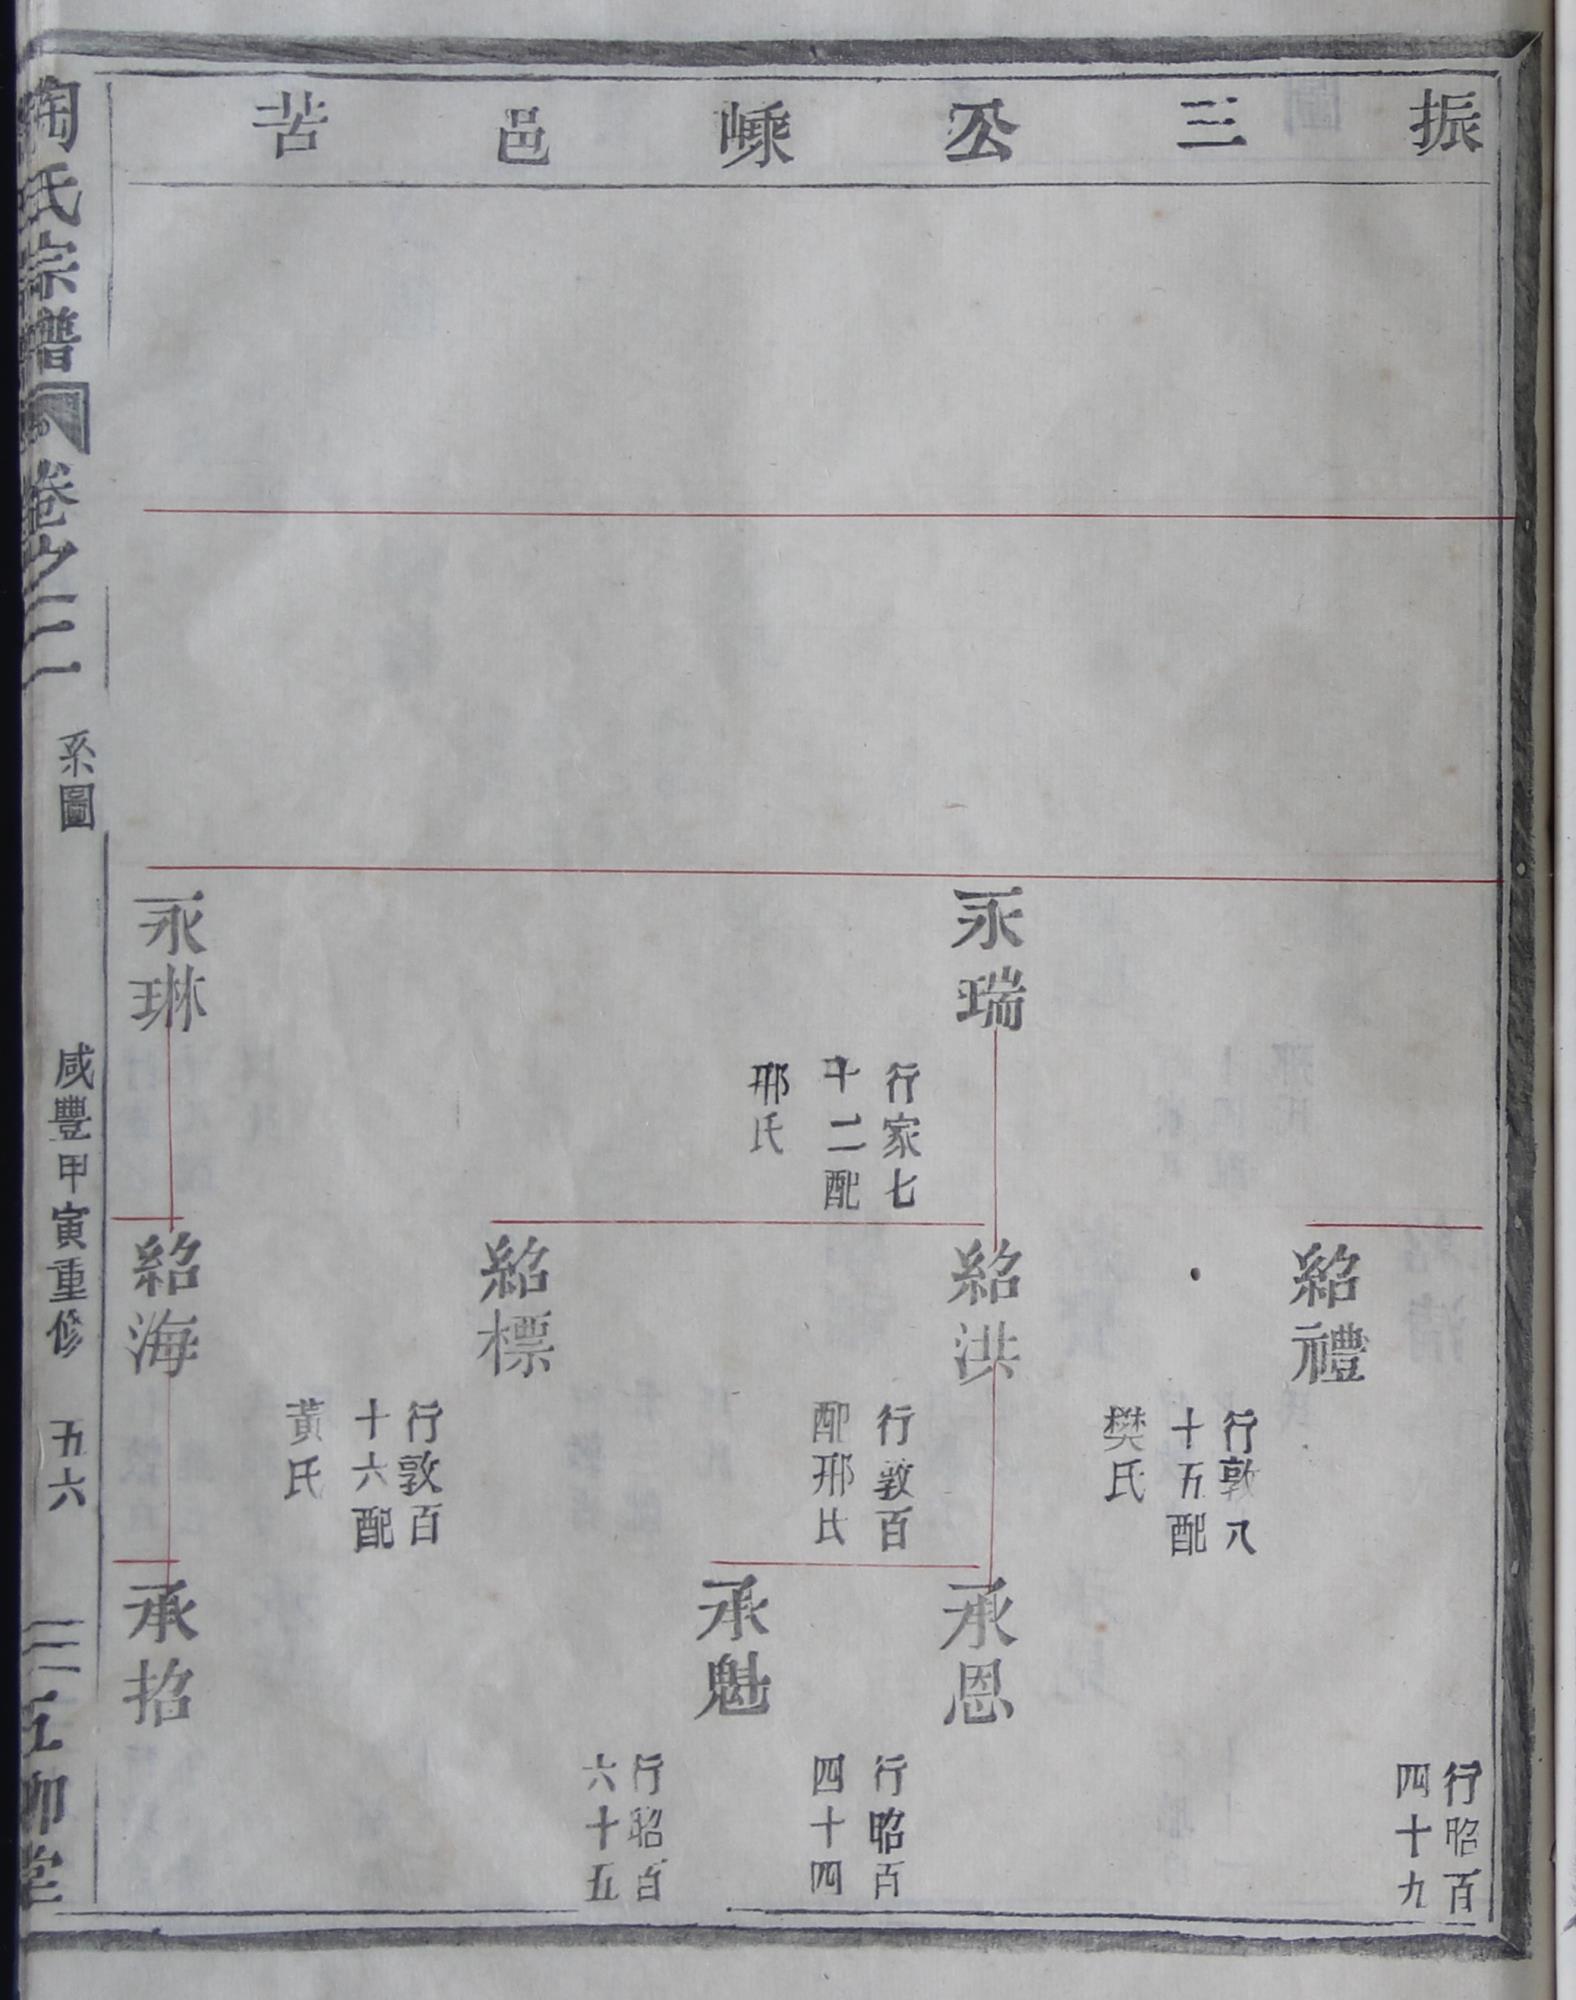 振三公嵊邑苦
永瑞
行家七
十二配
邢氏
永琳
紹禮
行敦八
十五配
樊氏
紹洪
行敦百
配邢氏
紹標
行敦百
十六配
黃氏
紹海
行昭百
四十九
承恩
行昭百
四十四
承魁
行昭百
六十五
承招
陶氏宗譜
卷之二
系圖
咸豐甲寅重修
五六
五柳堂